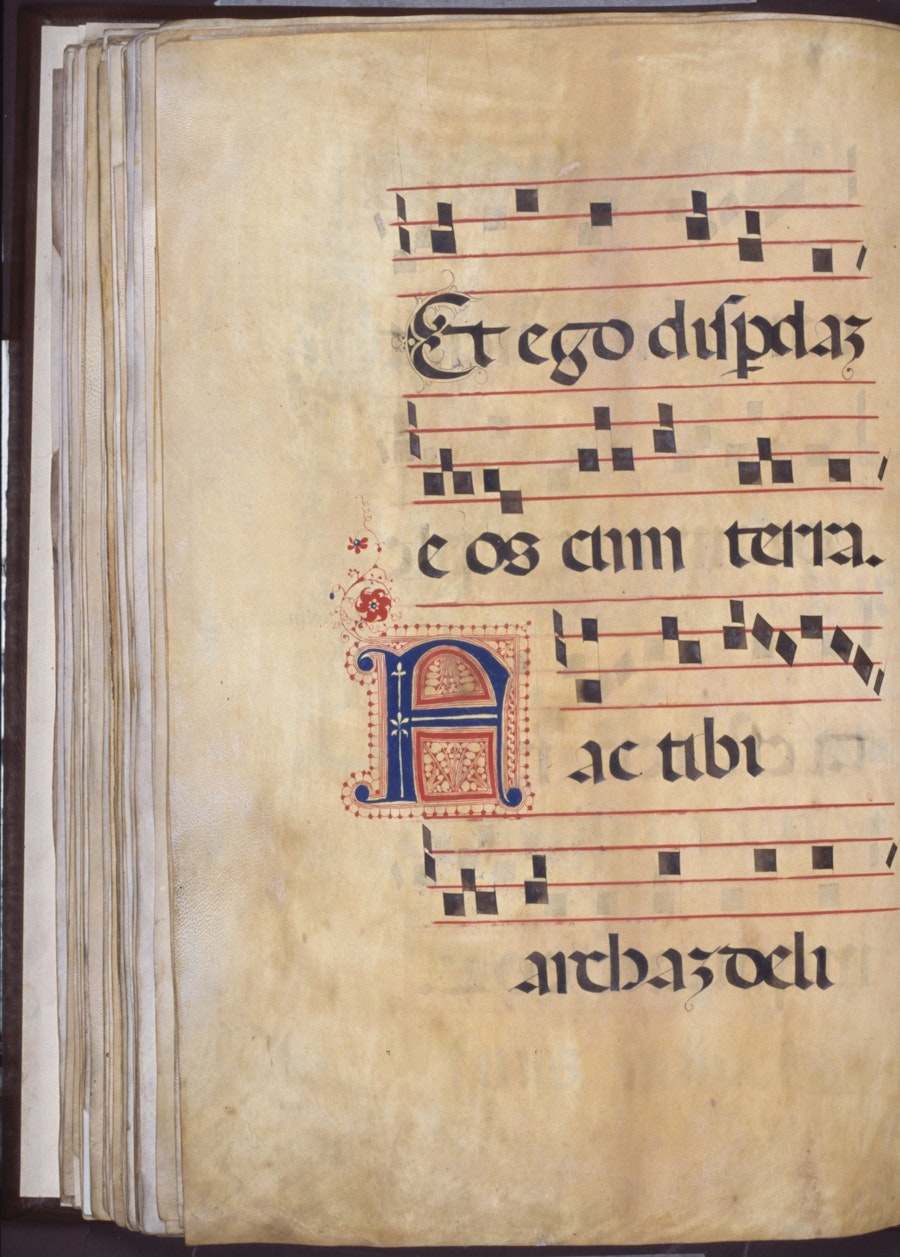 Et ego diſꝑdaꝫ
e os cum terra.
Aac tibi
archaꝫ de li